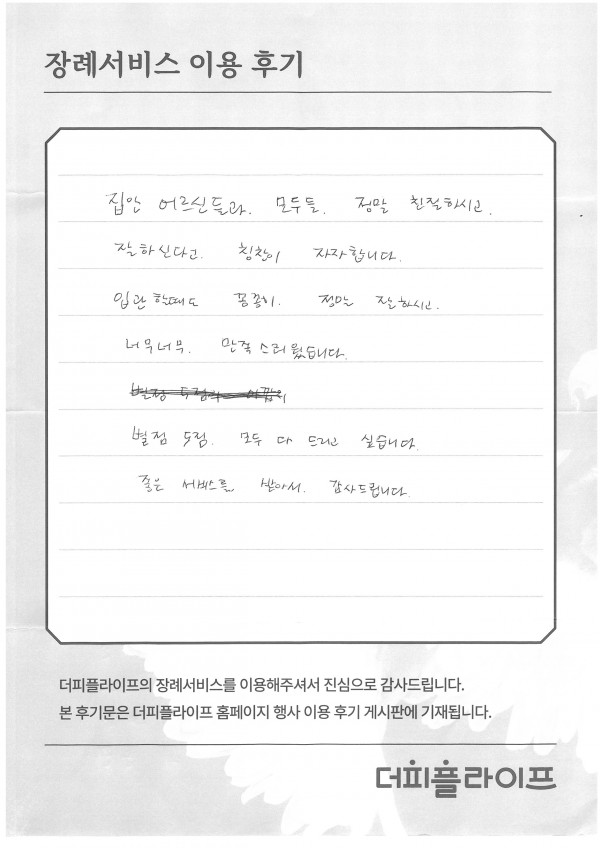 장례서비스 이용 후기
집안 어르신들과. 모두들. 정말 친절하시고.
잘하신다고. 칭찬이 자자합니다.
입관 할때도 꼼꼼히. 정말 잘하시고.
너무너무. 만족스러웠습니다.
별점 5점. 모두 다 드리고 싶습니다.
좋은 서비스를, 받아서. 감사드립니다.
더피플라이프의 장례서비스를 이용해주셔서 진심으로 감사드립니다.
본 후기문은 더피플라이프 홈페이지 행사 이용 후기 게시판에 기재됩니다.
더피플라이프